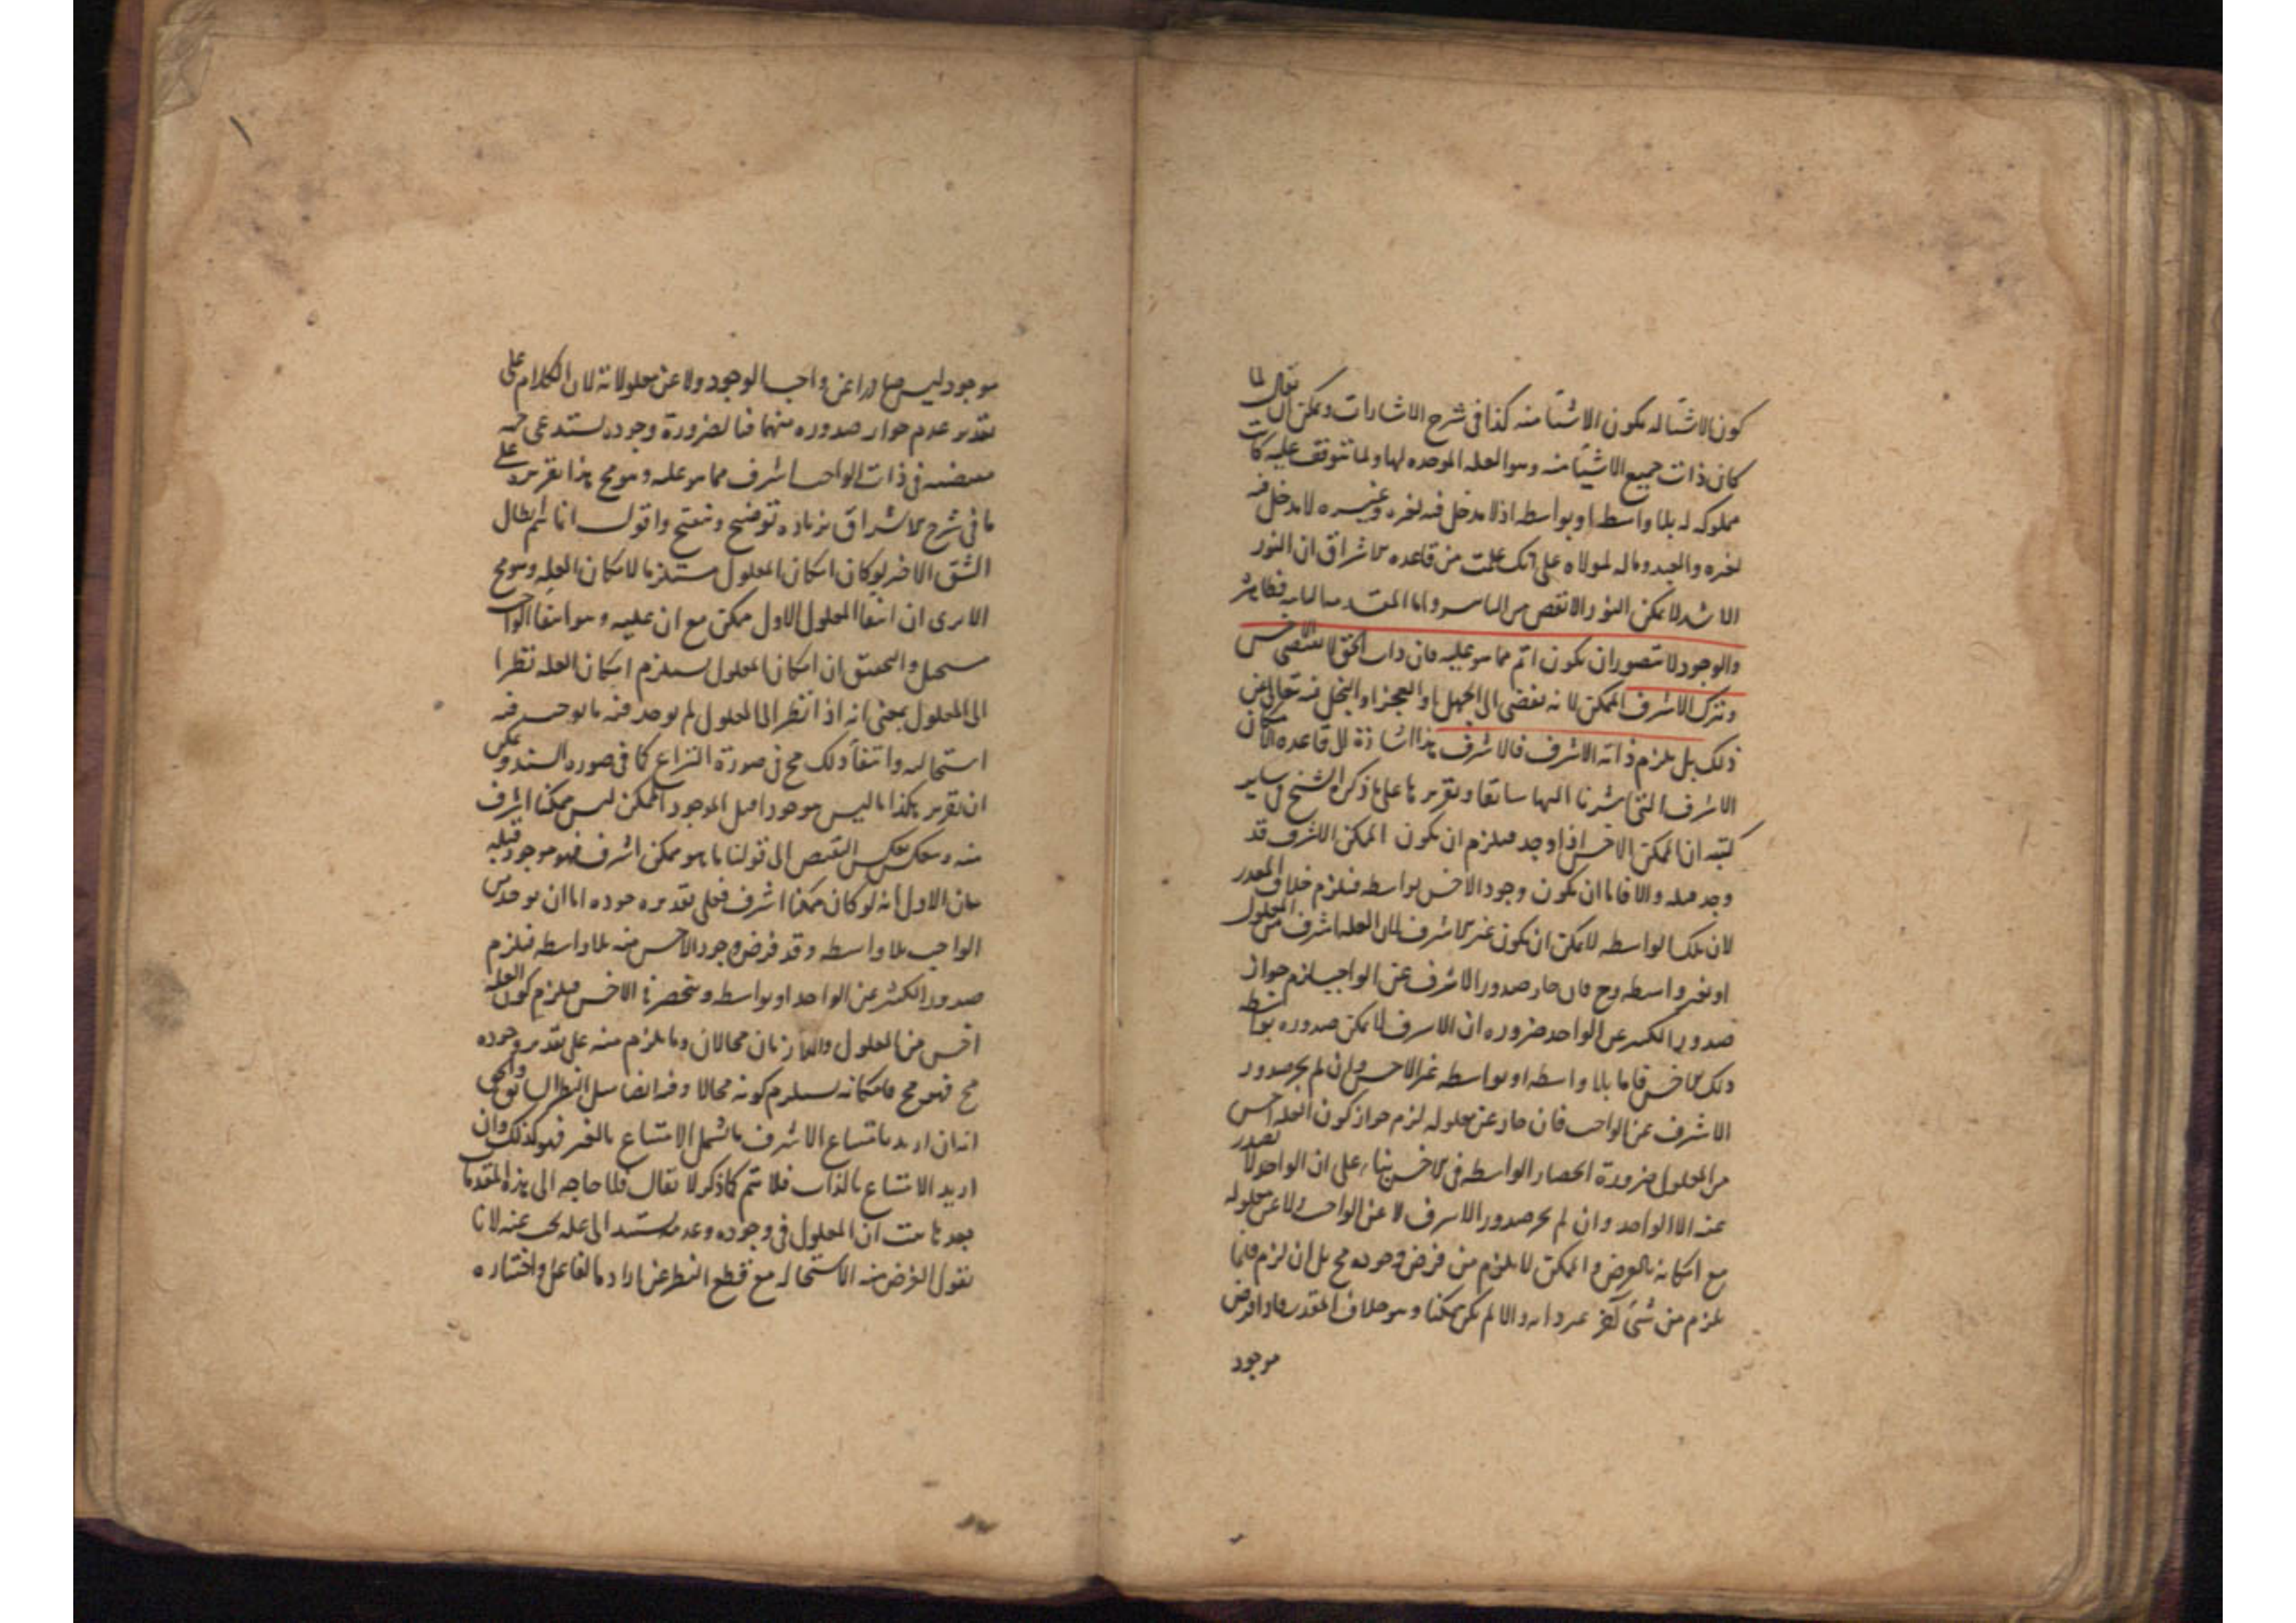 كون الاشيا له بكون الاشيا منه كذا فى شرح الاشارات ويمكن ان يقال لما
كان ذات جميع الاشيا منه وهو العله الموجده لها ولما تتوقف عليه كانت
مملوكه له بلا واسطه او بواسطه اذ لا مدخل فيه لغيره وغيره لا مدخل فيه
لغيره والعبد وماله لمولاه على انك علمت من قاعده الاشراق ان النور
الاشد لا يمكن النور الانقص من واما المقدمه فظاهره
والوجود لا يتصور ان يكون اتم مما هو عليه فان ذات الحق لا يقتضى الاخس
ويترك الاشرف الممكن لانه يفضى الى الجهل او العجز او البخل فيه تعالى عن
ذلك بل يلزم ذاته الاشرف فالاشرف هذا اشارة الى قاعده الامكان
الاشرف التى اشرنا اليها سابقا وتقريرها على ما ذكره الشيخ فى ساير
كتبه ان الممكن الاخس اذا وجد فيلزم ان يكون الممكن الاشرف قد
وجد قبله والا فاما ان يكون وجود الاخس بواسطه فيلزم خلاف المقدر
لان تلك الواسطه لا يمكن ان يكون غير الاشرف لان العله اشرف من المعلول
او بغير واسطه وح فان جاز صدور الاشرف عن الواجب لزم جواز
صدور الكثير عن الواحد ضروره ان الاشرف لا يمكن صدوره بواسطه
ذلك الاخس فاما بلا واسطه او بواسطه غير الاخس وان لم يجز صدور
الاشرف عن الواجب فان جاز عن معلوله لزم جواز كون العله اخس
من المعلول ضرورة انحصار الواسطه فى الاخس بناء على ان الواحد لا يصدر
عنه الا الواحد وان لم يجز صدور الاشرف لا عن الواجب ولا عن معلوله
مع امكانه بالفرض والممكن لا يلزم من فرض وجوده مح بل ان لزم فانما
يلزم من شئ آخر غير ذاته والا لم يكن ممكنا وهو خلاف المقدر فاذا فرض
موجود
موجود ليس صادرا عن واجب الوجود ولا عن معلولاته لان الكلام على
تقدير عدم جواز صدوره منهما فبالضرورة وجوده يستدعى جهه
مقتضيه فى ذات الواجب اشرف مما هو عليه وهو مح هذا تقريره على
ما فى شرح الاشراق بزياده توضيح وتنقيح واقول انما يتم ابطال
الشق الاخير لو كان امكان المعلول مستلزما لامكان العله وهو مح
الا يرى ان انتفا المعلول الاول ممكن مع ان عليه وهو انتفا الواجب
مستحيل والتحقيق ان امكان المعلول يستلزم امكان العله نظرا
الى المعلول بمعنى انه اذا نظر الى المعلول لم يوجد فيه ما يوجب فيه
استحاله وانتفا ذلك مح فى صورة النزاع كما فى صوره السند ويمكن
ان يقرر هكذا ما ليس موجودا قبل الموجود الممكن ليس ممكنا اشرف
منه وينعكس بعكس النقيض الى قولنا ما هو ممكن اشرف فهو موجود قبله
بيان الاول انه لو كان ممكنا اشرف فعلى تقدير وجوده اما ان يوجد من
الواجب بلا واسطه وقد فرض وجود الاخس منه بلا واسطه فيلزم
صدور الكثير عن الواحد او بواسطه وينحصر فى الاخس فيلزم كون العله
اخس من المعلول واللازمان محالان وما يلزم منه على تقدير وجوده
مح فهو مح فامكانه يستلزم كونه محالا وفيه ايضا مثل النظر السابق وهى
انه ان اريد بامتناع الاشرف ما يشمل الامتناع بالغير فهو كذلك وان
اريد الامتناع بالذات فلا يتم كما ذكر لا يقال فلا حاجه الى هذه المقدمات
بعد ما ثبت ان المعلول فى وجوده وعدمه مستند الى عله يجب عنه لانا
نقول الغرض منه الاستحاله مع قطع النظر عن ارادة الفاعل واختياره